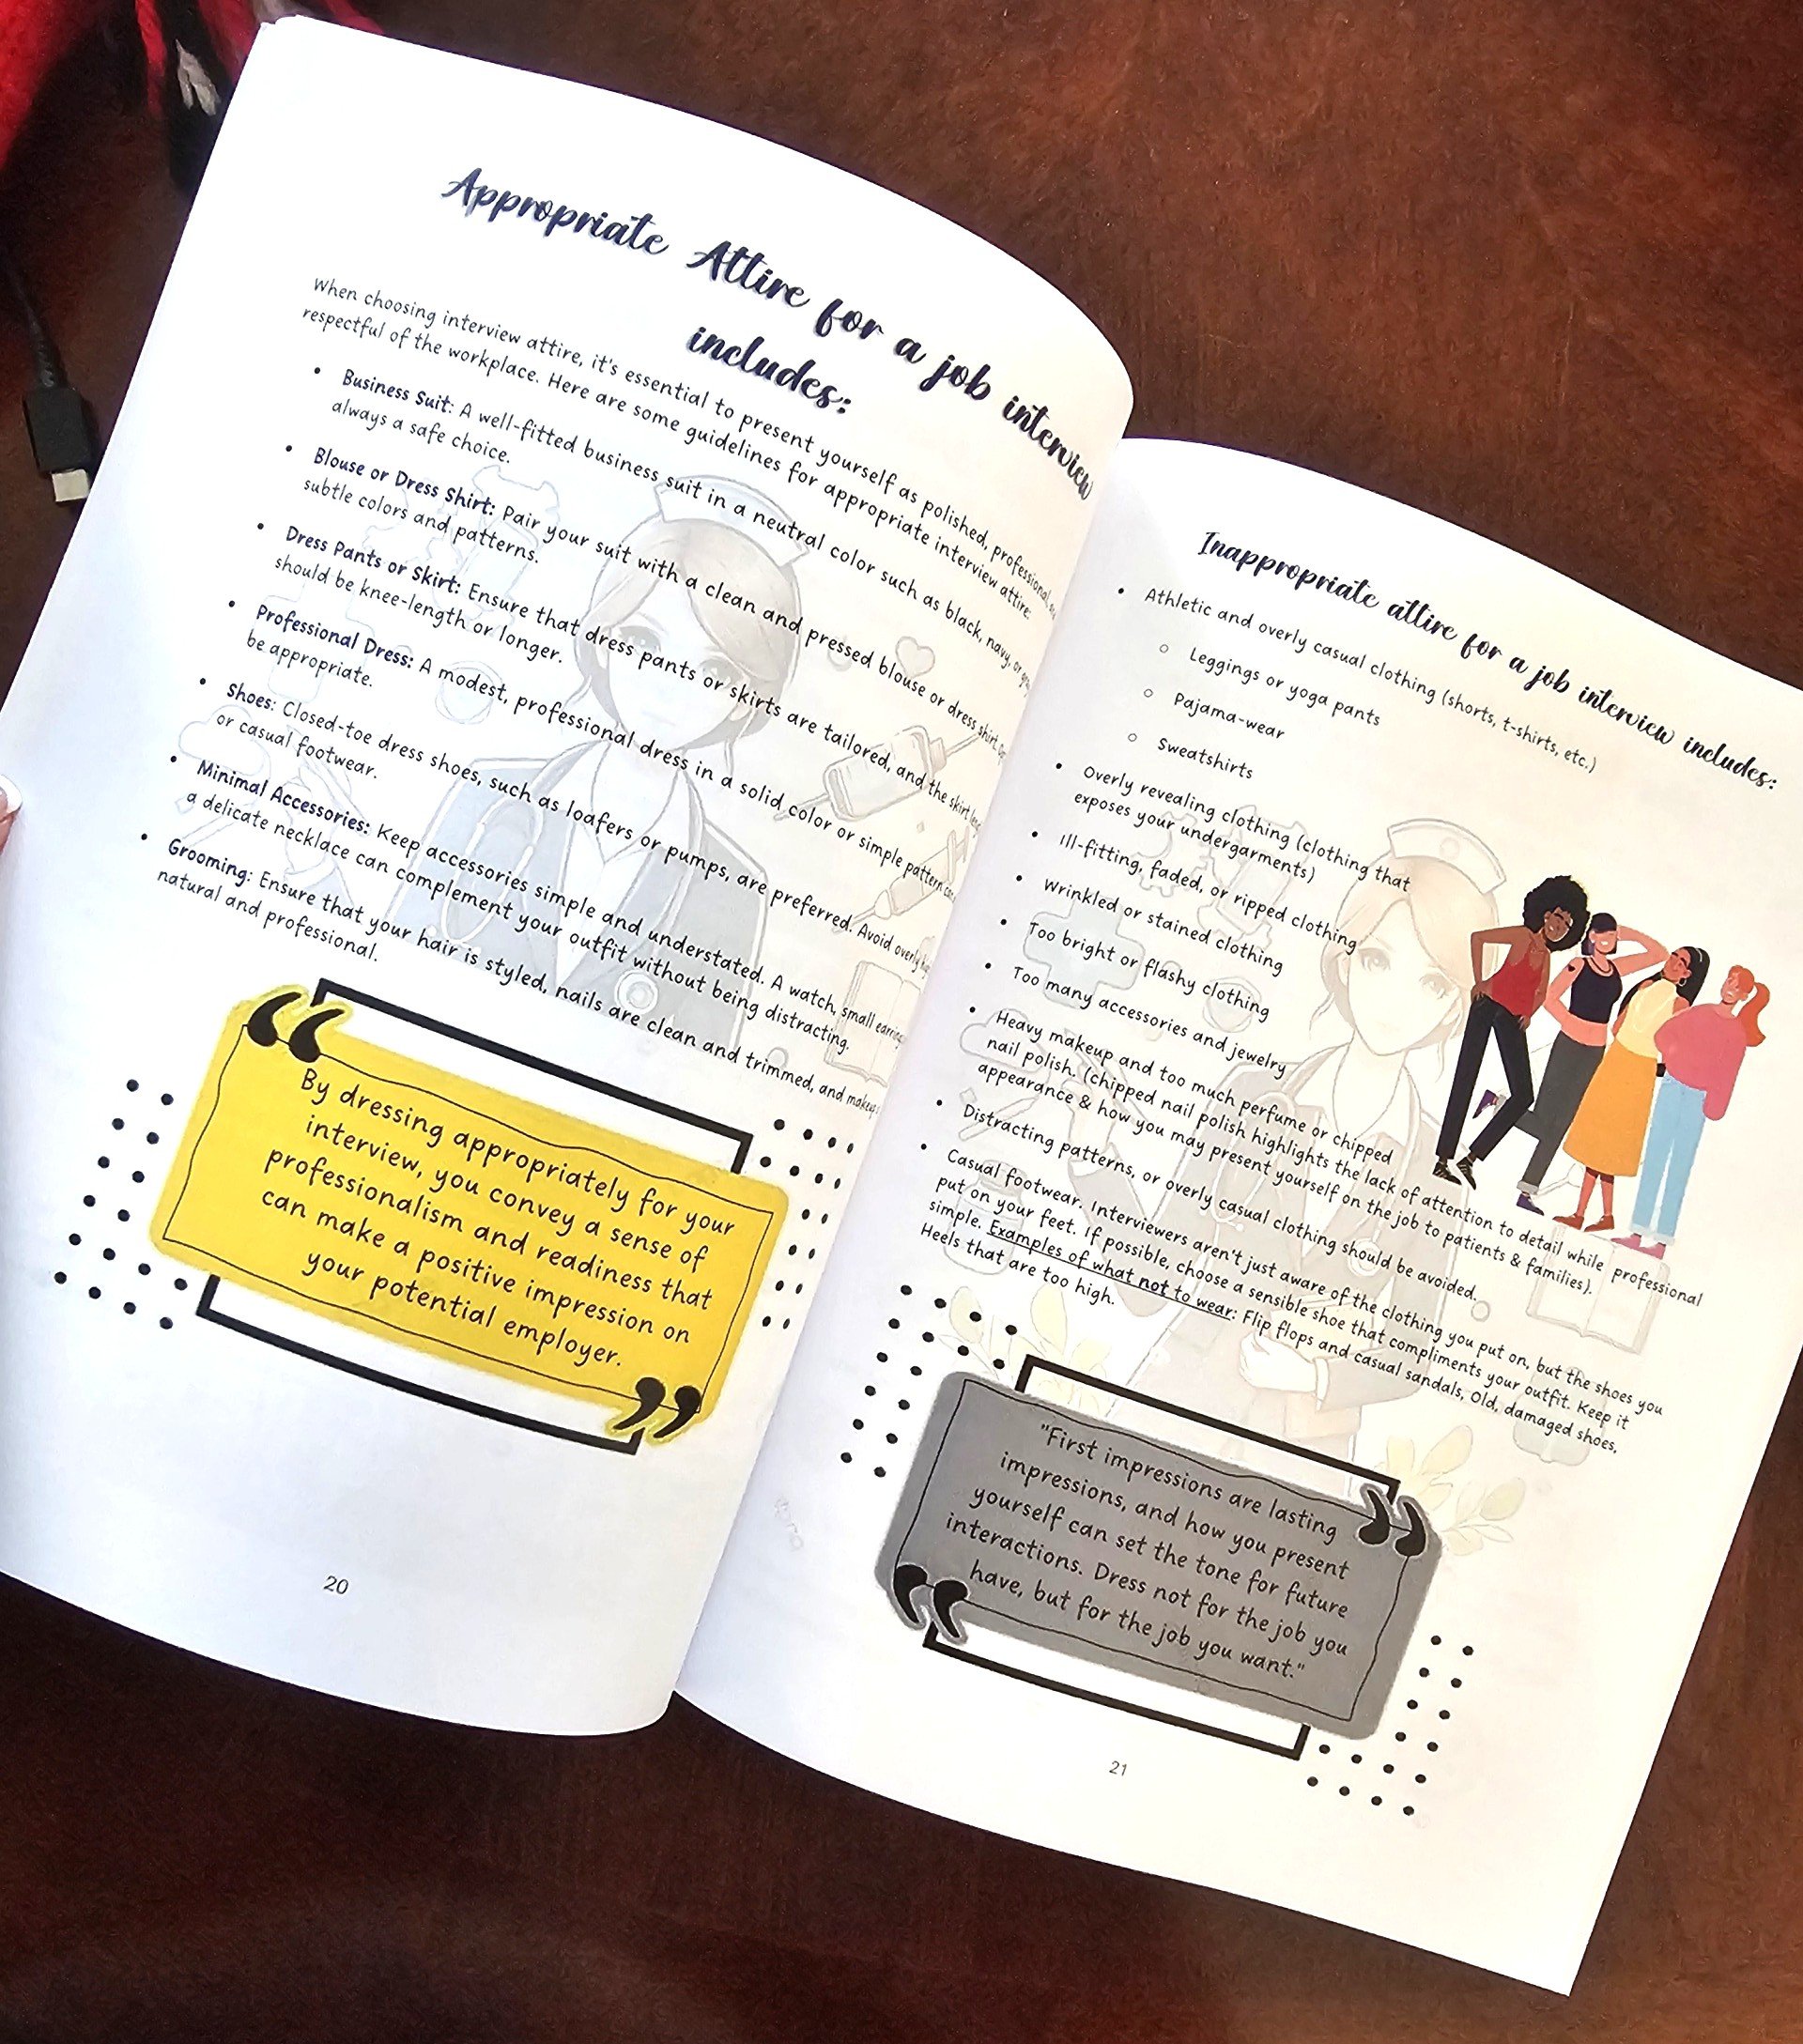 Appropriate Attire for a job interview
includes:
When choosing interview attire, it's essential to present yourself as polished, professional,
respectful of the workplace. Here are some guidelines for appropriate interview attire:
• Business Suit: A well-fitted business suit in a neutral color such as black, navy, or
always a safe choice.
• Blouse or Dress Shirt: Pair your suit with a clean and pressed blouse or dress shirt.
subtle colors and patterns.
• Dress Pants or Skirt: Ensure that dress pants or skirts are tailored, and the skirt
should be knee-length or longer.
• Professional Dress: A modest, professional dress in a solid color or simple pattern
be appropriate.
• Shoes: Closed-toe dress shoes, such as loafers or pumps, are preferred. Avoid overly
or casual footwear.
• Minimal Accessories: Keep accessories simple and understated. A watch, small
a delicate necklace can complement your outfit without being distracting.
• Grooming: Ensure that your hair is styled, nails are clean and trimmed, and makeup
natural and professional.
By dressing appropriately for your
interview, you convey a sense of
professionalism and readiness that
can make a positive impression on
your potential employer.
20
Inappropriate attire for a job interview includes:
• Athletic and overly casual clothing (shorts, t-shirts, etc.)
○ Leggings or yoga pants
○ Pajama-wear
○ Sweatshirts
• Overly revealing clothing (clothing that
exposes your undergarments)
• Ill-fitting, faded, or ripped clothing
• Wrinkled or stained clothing
• Too bright or flashy clothing
• Too many accessories and jewelry
• Heavy makeup and too much perfume or chipped
nail polish. (chipped nail polish highlights the lack of attention to detail while professional
appearance & how you may present yourself on the job to patients & families).
• Distracting patterns, or overly casual clothing should be avoided.
• Casual footwear. Interviewers aren't just aware of the clothing you put on, but the shoes you
put on your feet. If possible, choose a sensible shoe that compliments your outfit. Keep it
simple. Examples of what not to wear: Flip flops and casual sandals, Old, damaged shoes,
Heels that are too high.
"First impressions are lasting
impressions, and how you present
yourself can set the tone for future
interactions. Dress not for the job you
have, but for the job you want."
21